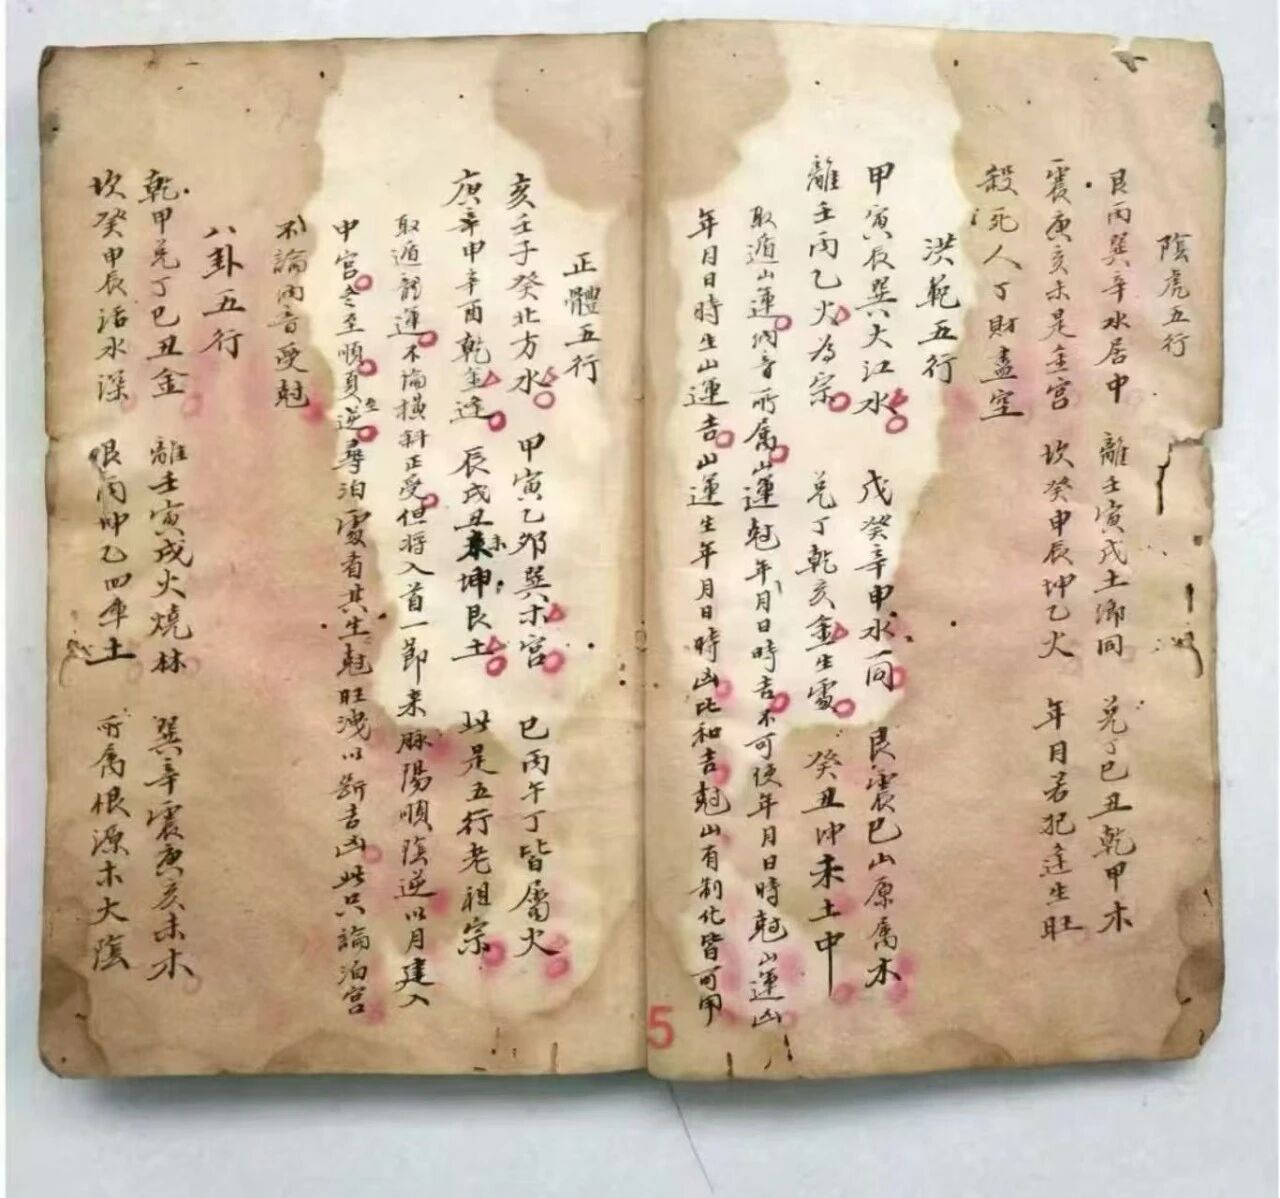 陰虎五行
艮丙巽辛水居中 離壬寅戌土鄉同 兌丁巳丑乾甲木
震庚亥未是金宮 坎癸申辰坤乙火 年月若犯逢生旺
殺死人丁財盡空
洪範五行
甲寅辰巽大江水 戌癸辛申水一同 艮震巳山原屬木
離壬丙乙火為宗 兌丁乾亥金生處 癸丑坤未土中
取遁山運納音所屬山運尅年月日時吉不可使年月日時尅山運凶
年月日時生山運吉山運生年月日時凶比和吉尅山有制化皆可用
正體五行
亥壬子癸北方水 甲寅乙卯巽木宮 巳丙午丁皆屬火
庚辛申辛酉乾金逢 辰戌丑未坤艮土 此是五行老祖宗
取遁龍運不論橫斜正受但將入首一節來脉陽順陰逆以月建入
中宮 至順 逆尋泊處看其生尅旺洩以斷吉凶此只論泊宮
不論納音受尅
八卦五行
乾甲兌丁巳丑金 離壬寅戌火燒林 巽辛震庚亥未木
坎癸申辰活水深 艮丙坤乙四庫土 所屬根源木大陰
5